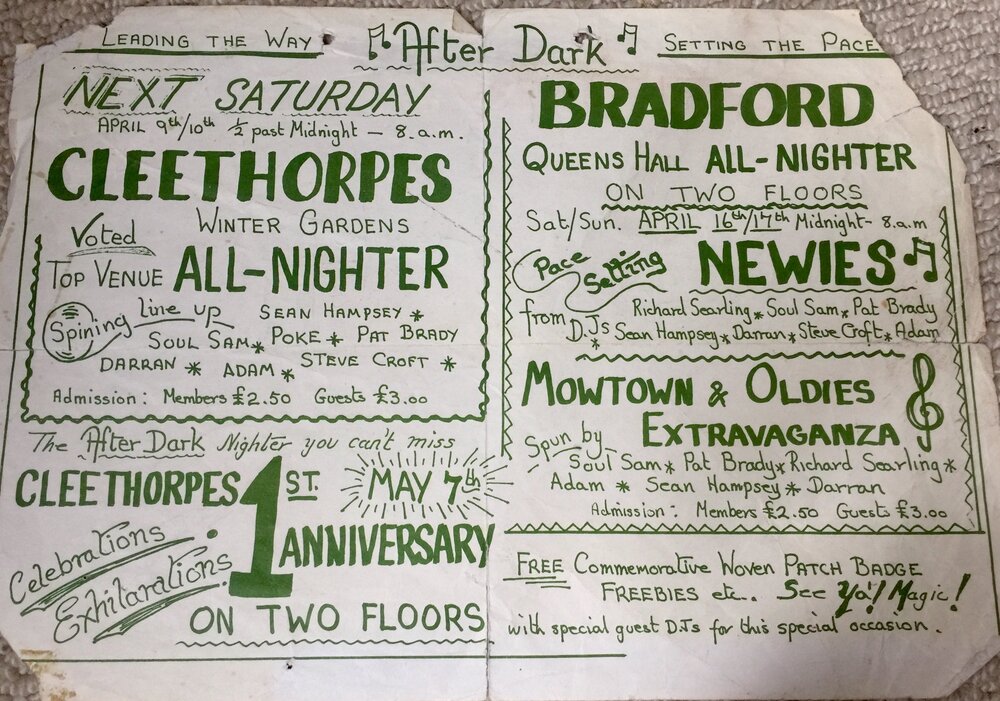 LEADING THE WAY
After Dark
SETTING THE PACE
NEXT SATURDAY
APRIL 9th/10th ½ past Midnight — 8.a.m.
CLEETHORPES
WINTER GARDENS
Voted
TOP VENUE ALL-NIGHTER
Spining Line up SEAN HAMPSEY *
SOUL SAM * POKE * PAT BRADY
DARRAN * ADAM * STEVE CROFT *
Admission: Members £2.50 Guests £3.00
The After Dark Nighter you can't miss
CLEETHORPES 1ST. MAY 7th
ANNIVERSARY
Celebrations
Exhilarations
ON TWO FLOORS
BRADFORD
QUEENS HALL ALL-NIGHTER
ON TWO FLOORS
Sat/Sun. APRIL 16th/17th Midnight- 8.a.m
Pace Setting NEWIES
from D.J.s Richard Searling * Soul Sam * Pat Brady
* Sean Hampsey * Darran * Steve Croft * Adam
MOWTOWN & OLDIES
EXTRAVAGANZA
Spun by
Soul Sam * Pat Brady * Richard Searling *
Adam * Sean Hampsey * Darran
Admission: Members £2.50 Guests £3.00
FREE Commemorative Woven PATCH BADGE
FREEBIES etc.. See Ya! Magic!
with special guest D.J.s for this special occasion.